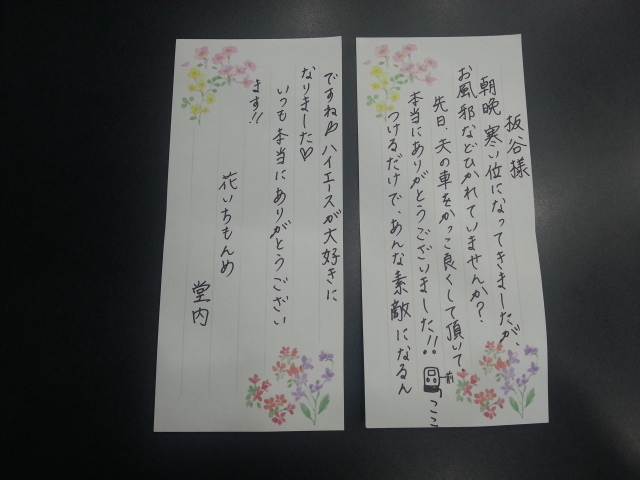 板谷様
朝晩、寒い位になってきましたが、
お風邪などひかれていませんか?
先日、夫の車をかっこ良くして頂いて、
本当にありがとうございました!!
前
ここ
つけるだけで、あんな素敵になるん
ですね♪ハイエースが大好きに
なりました♡
いつも本当にありがとうござい
ます!!
花いちもんめ
堂内